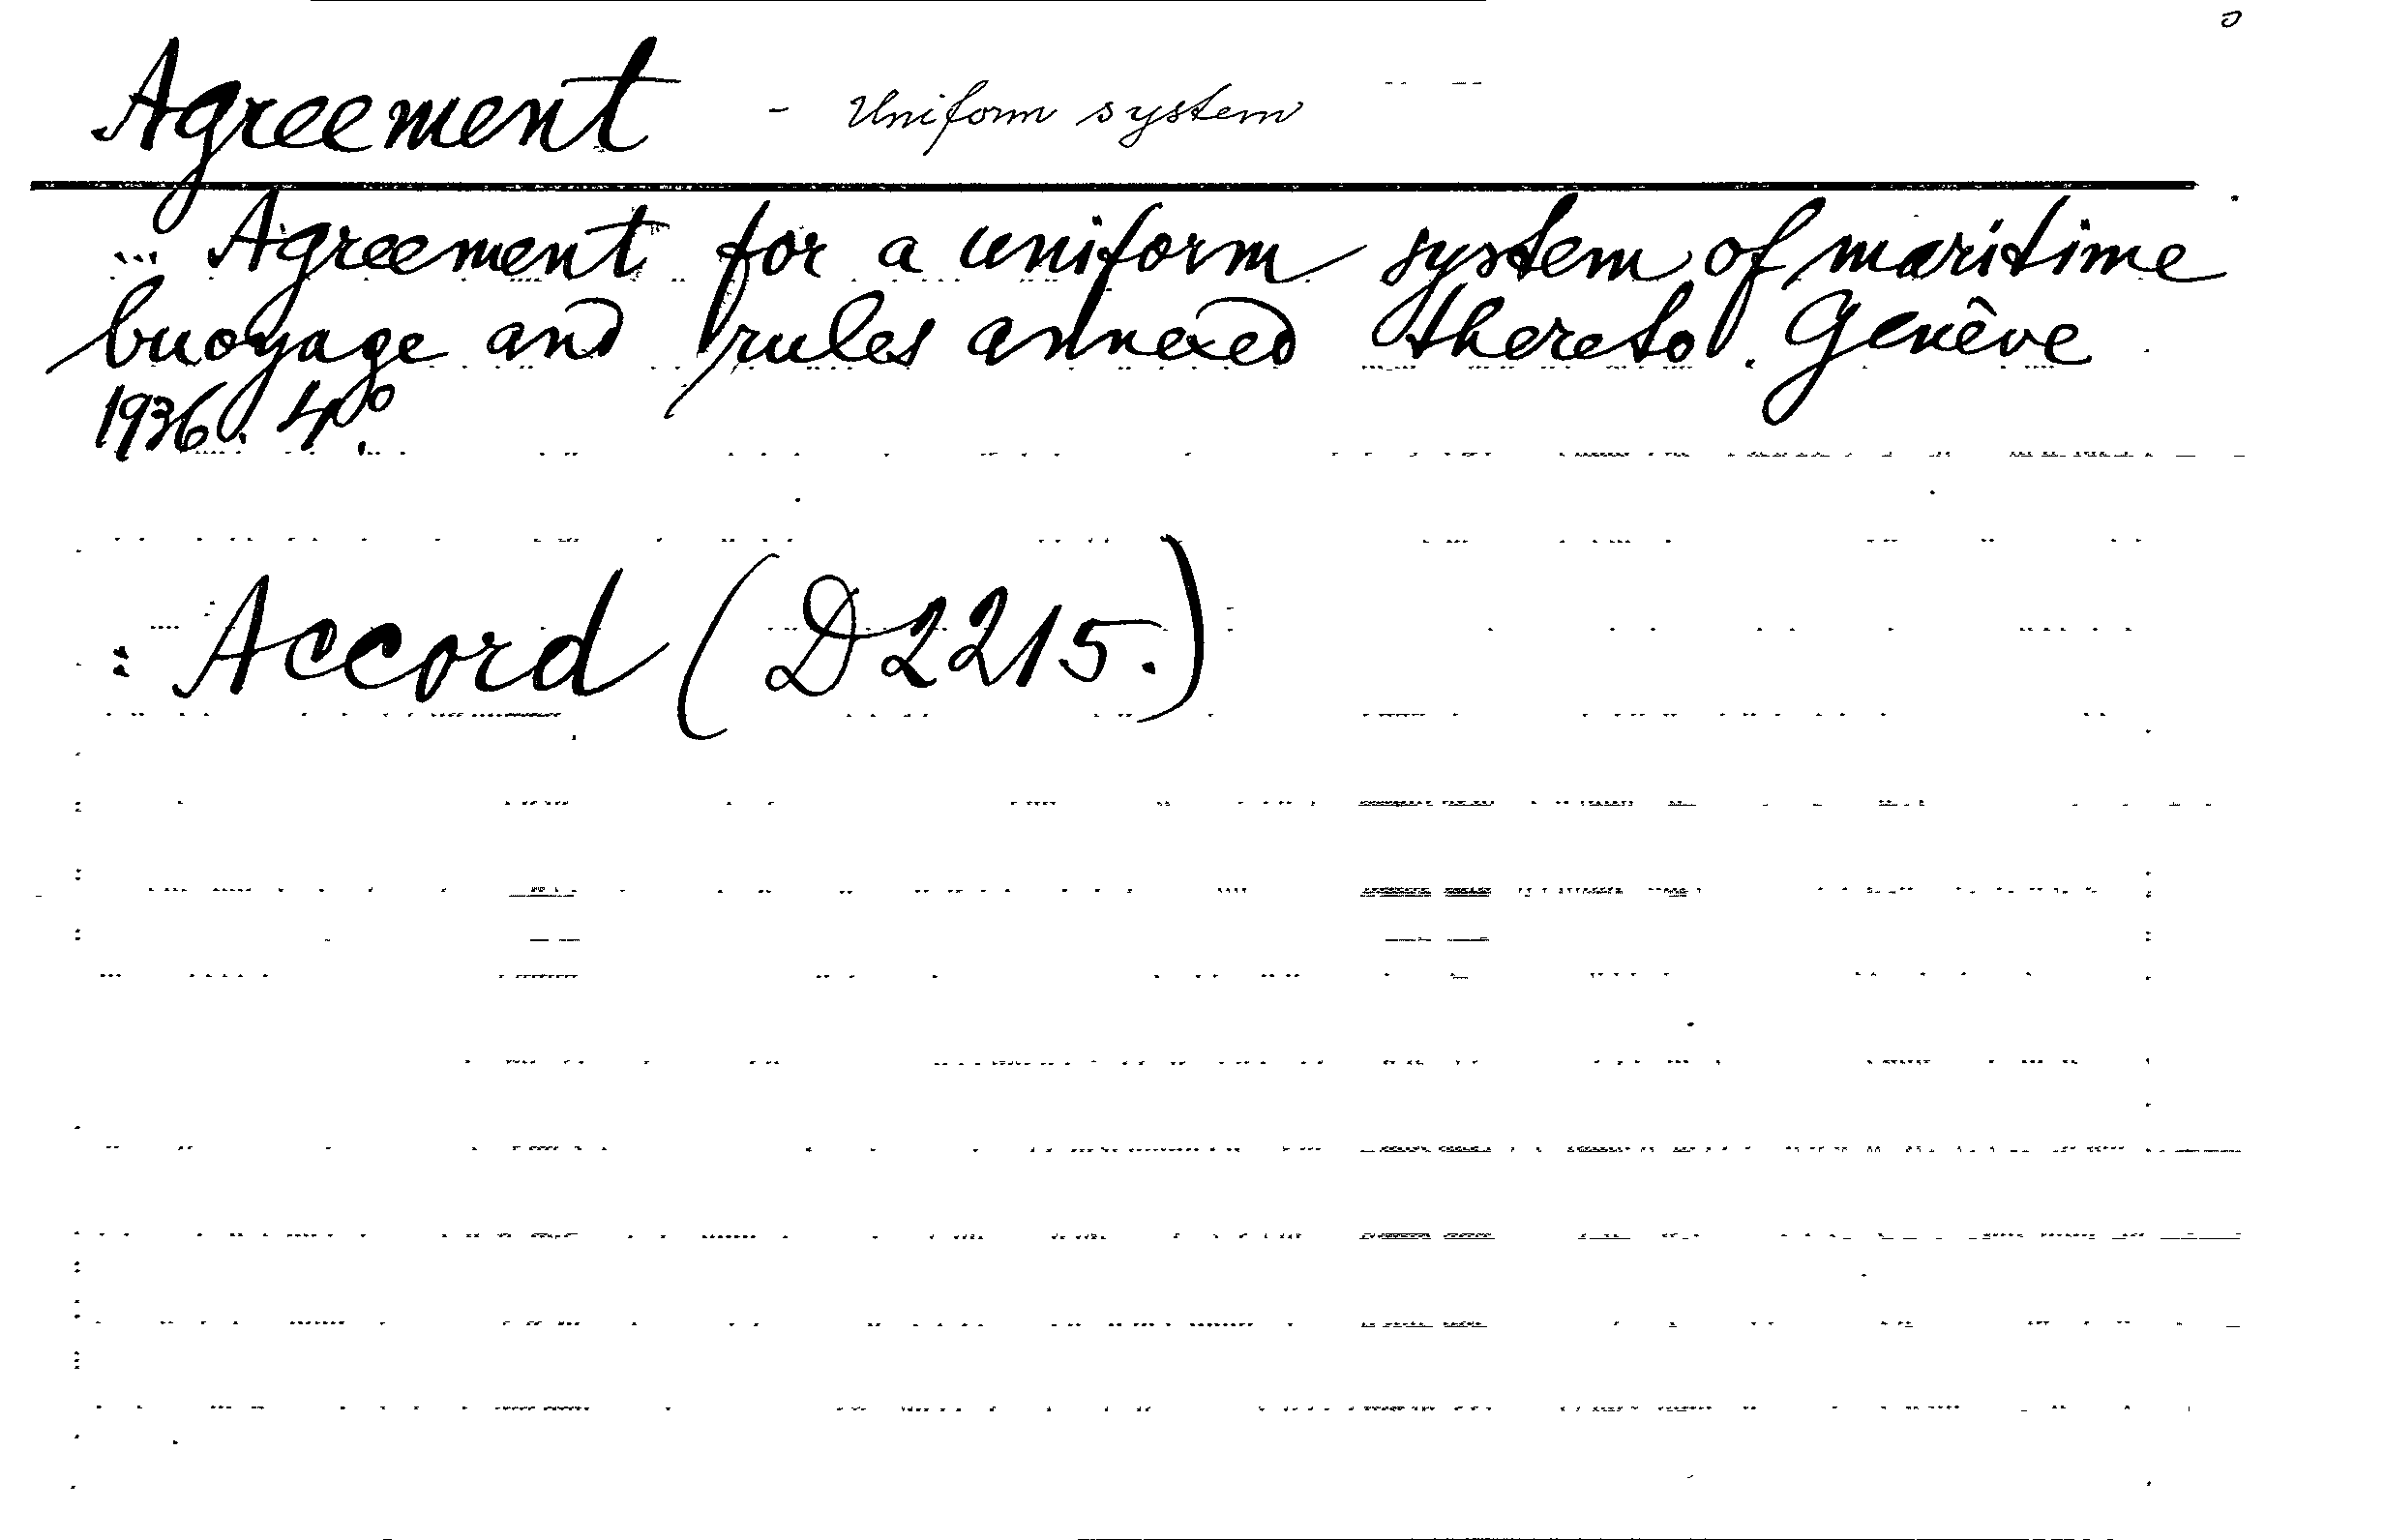 Agreement - Uniform system
... Agreement for a uniform system of maritime
buoyage and rules annexed thereto. Genève
1936. 4º.
: Accord (D2215.)